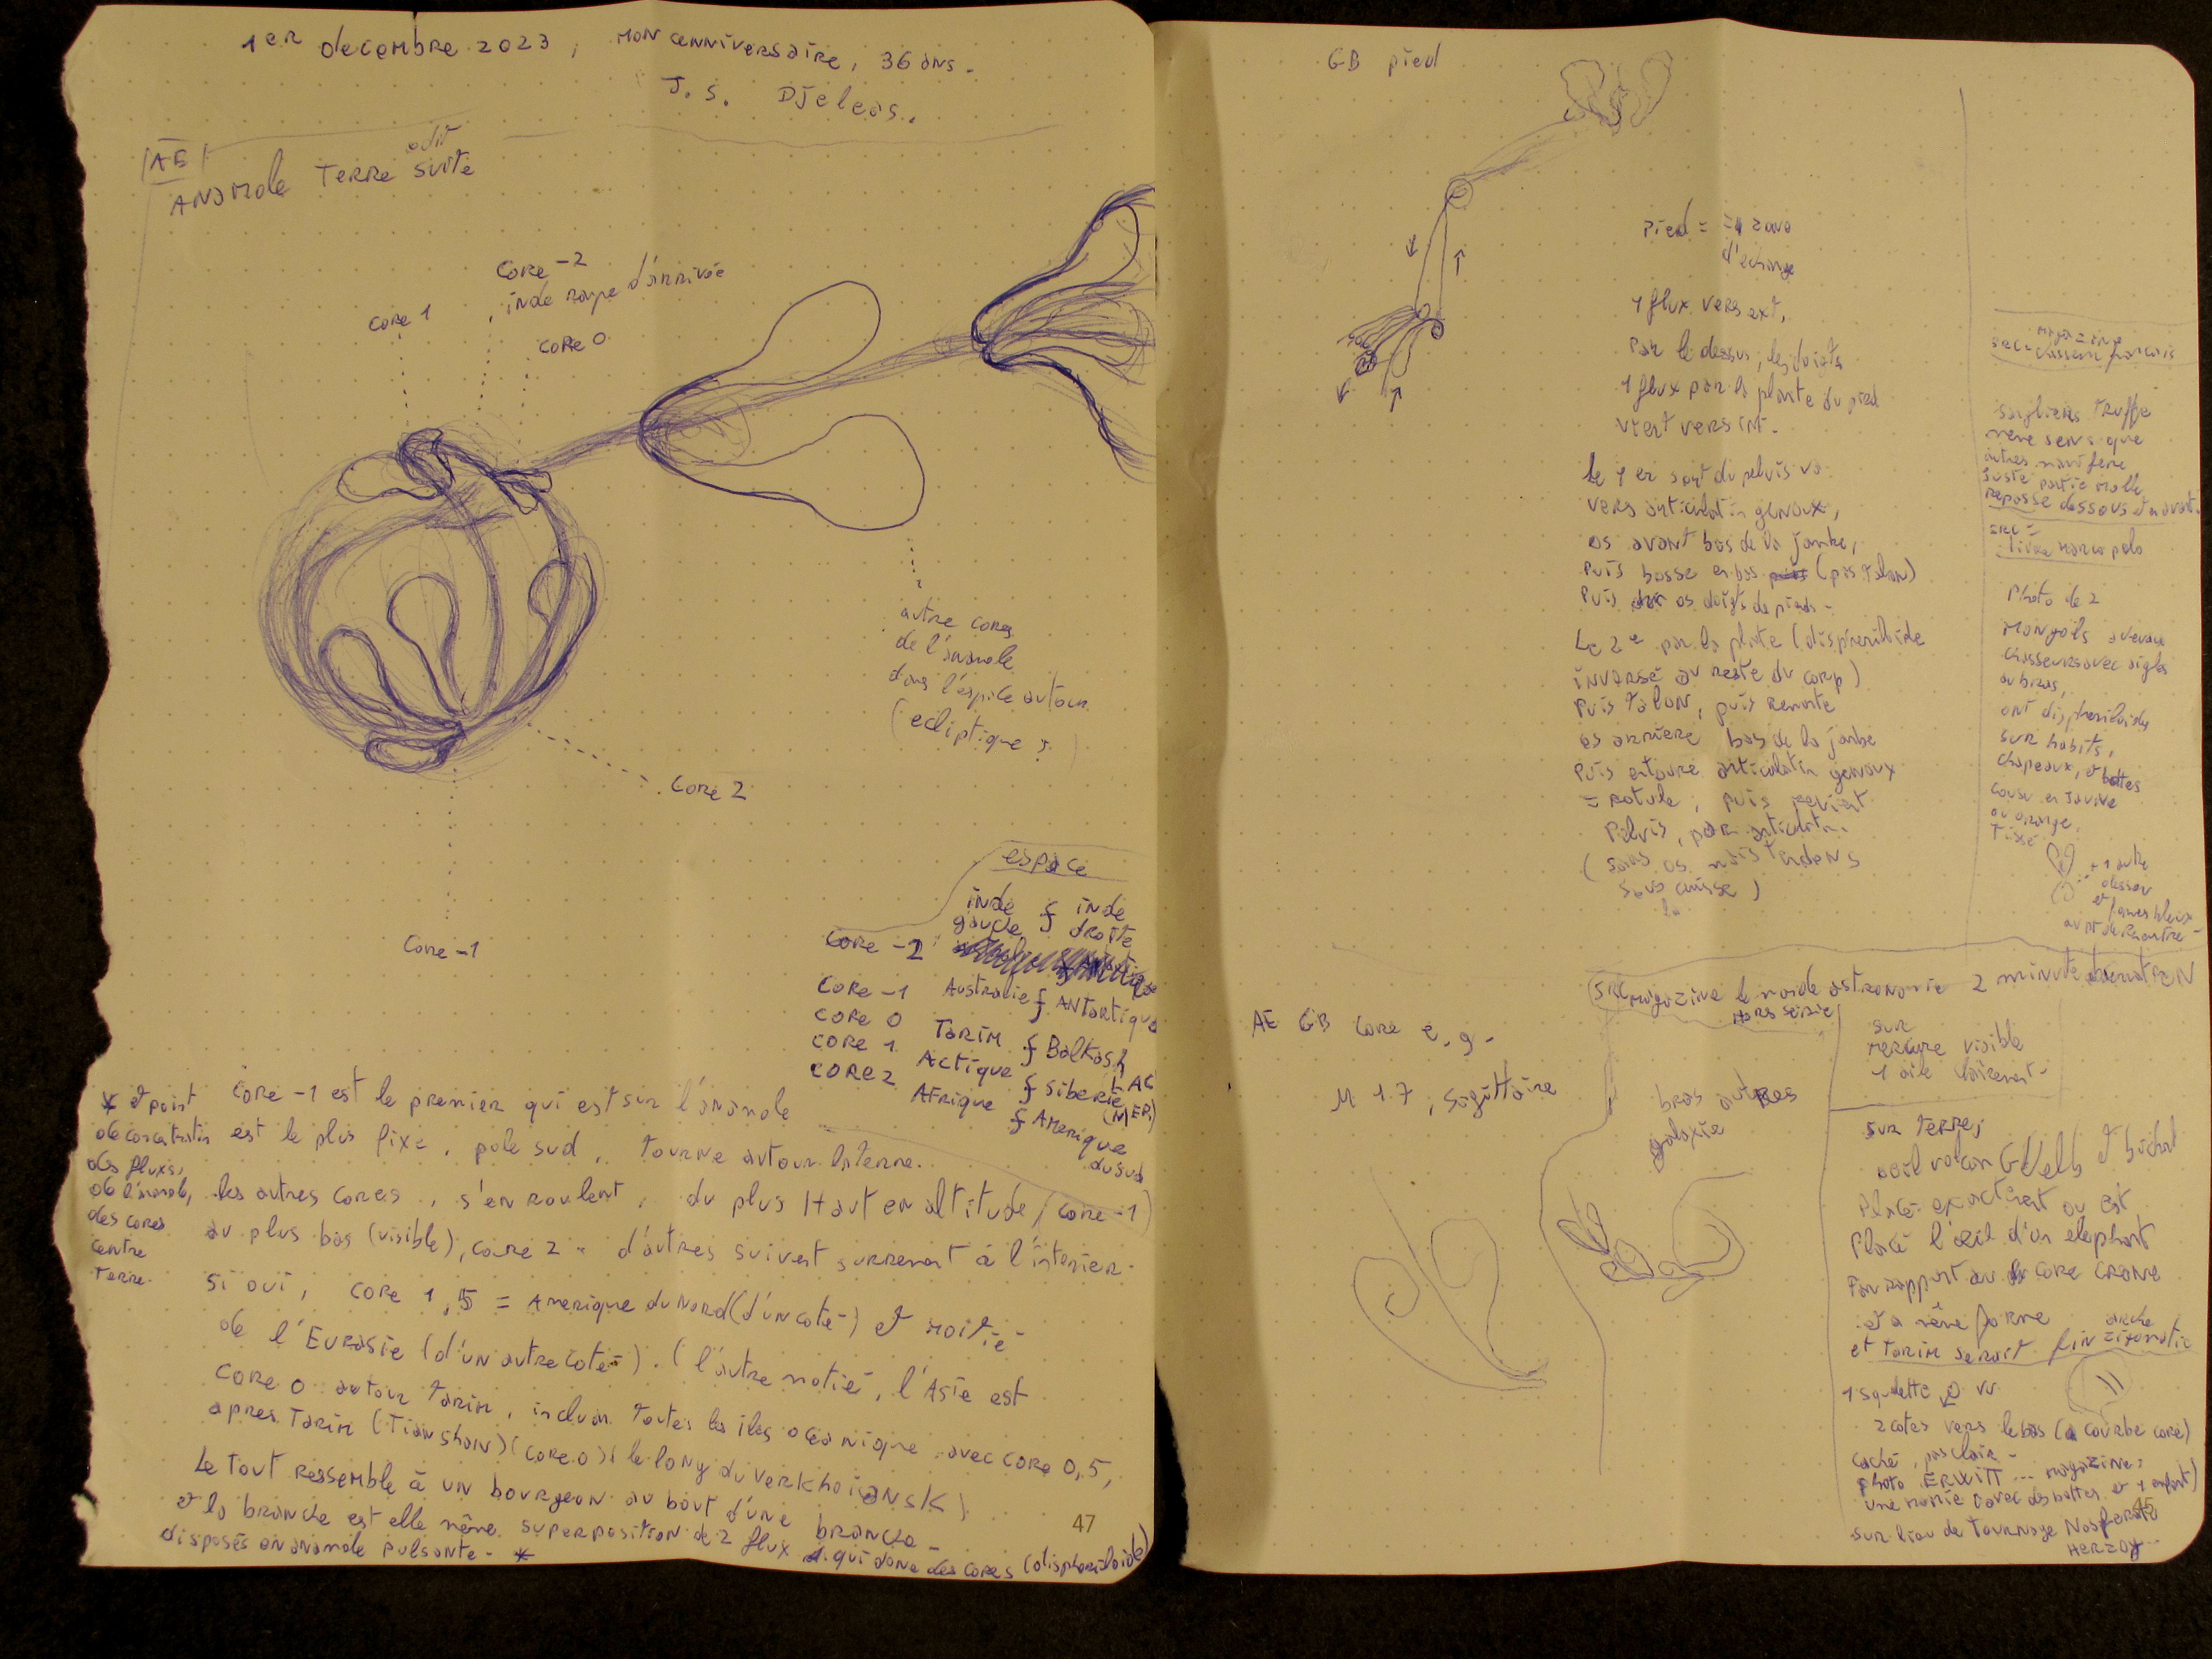 1ER decembre 2023, MON anniversaire, 36 ans.
J. S. DJeleas.
AE
edit
ANAMole TERRE SUITE
Core -2
inde rampe d'arrivée
Core 1
Core 0
autre cores
de l'anamole
dans l'espace autour
(ecliptique ?)
Core 2
Core -1
espace
inde gauche { inde droite
Core -2
Core -1 Australie { ANTARTIQUE
Core 0 Tarim { Balkash LAC
Core 1 Actique { Siberie (MER)
Core 2 AFRIQUE { AMERIQUE du sud
Core -1 est le premier qui est sur l'anamole
est le plus fixe, pole sud, tourne autour
les autres cores, s'enroulent, du plus Haut en altitude (core -1)
au plus bas (visible), core 2. d'autres suivent surement à l'interieur.
Si oui, core 1,5 = Amerique du Nord (d'un coté) et moitié
de l'EURASIE (d'un autre coté). (l'autre moitié, l'Asie est
core 0 autour Tarim, incluant toutes les iles oceanique, avec core 0,5,
apres Tarim (Tianshan) (core 0) le long du VERKHOIANSK)
Le tout ressemble à un bourgeon au bout d'une branche.
et la branche est elle même superposition de 2 flux qui donne des cores (dispheriloide)
disposés en anamole pulsante. *
* et point
de concentration
des fluxs,
de l'anamole,
des cores
centre
Terre.
47
GB pied
Pied = zone
d'echange
1 flux vers ext,
Par le dessus, les doigts
1 flux par la plante du pied
vient vers int.
le 1er sort du pelvis va
vers articulation genoux,
os avant bas de la jambe,
puis bosse en bas (pas talon)
puis os doigts de pieds.
Le 2e par la plante (dispheriloide
inversé au reste du corp)
puis talon, puis remonte
os arriere bas de la jambe
puis entoure articulation genoux
= rotule, puis revient
Pelvis, par articulation
(sans os mais tendons
sous cuisse)
la
SRC = magazine
chasseur francais
sangliers truffe
même sens que
autres mamifere
juste partie molle
repose dessous et en avant.
SRC =
livre Marco polo
Photo de 2
Mongols
chasseurs avec aigles
au bras,
ont dispheriloide
sur habits,
chapeaux, et bottes
cousu en jaune
ou orange.
Tissé
+ 1 autre
dessous
SRC magazine le monde astronomie 2 minute
Hors serie
AE GB core e.g.
M 17, Sagittaire
bras autres
galaxie
sur
mercure visible
1 aile clairement.
sur Terre,
oeil volcan
Placé exactement ou est
Placé l'oeil d'un elephant
Par rapport au core crane
et a même forme
et Tarim serait fin arche
1 squelette vu
2 cotes vers le bas (a courbe core)
caché, pas clair.
photo ERWITT ... magazine,
une momie (avec des bottes et 1 enfant)
sur lieu de tournage Nosferatu
HERZOG
45